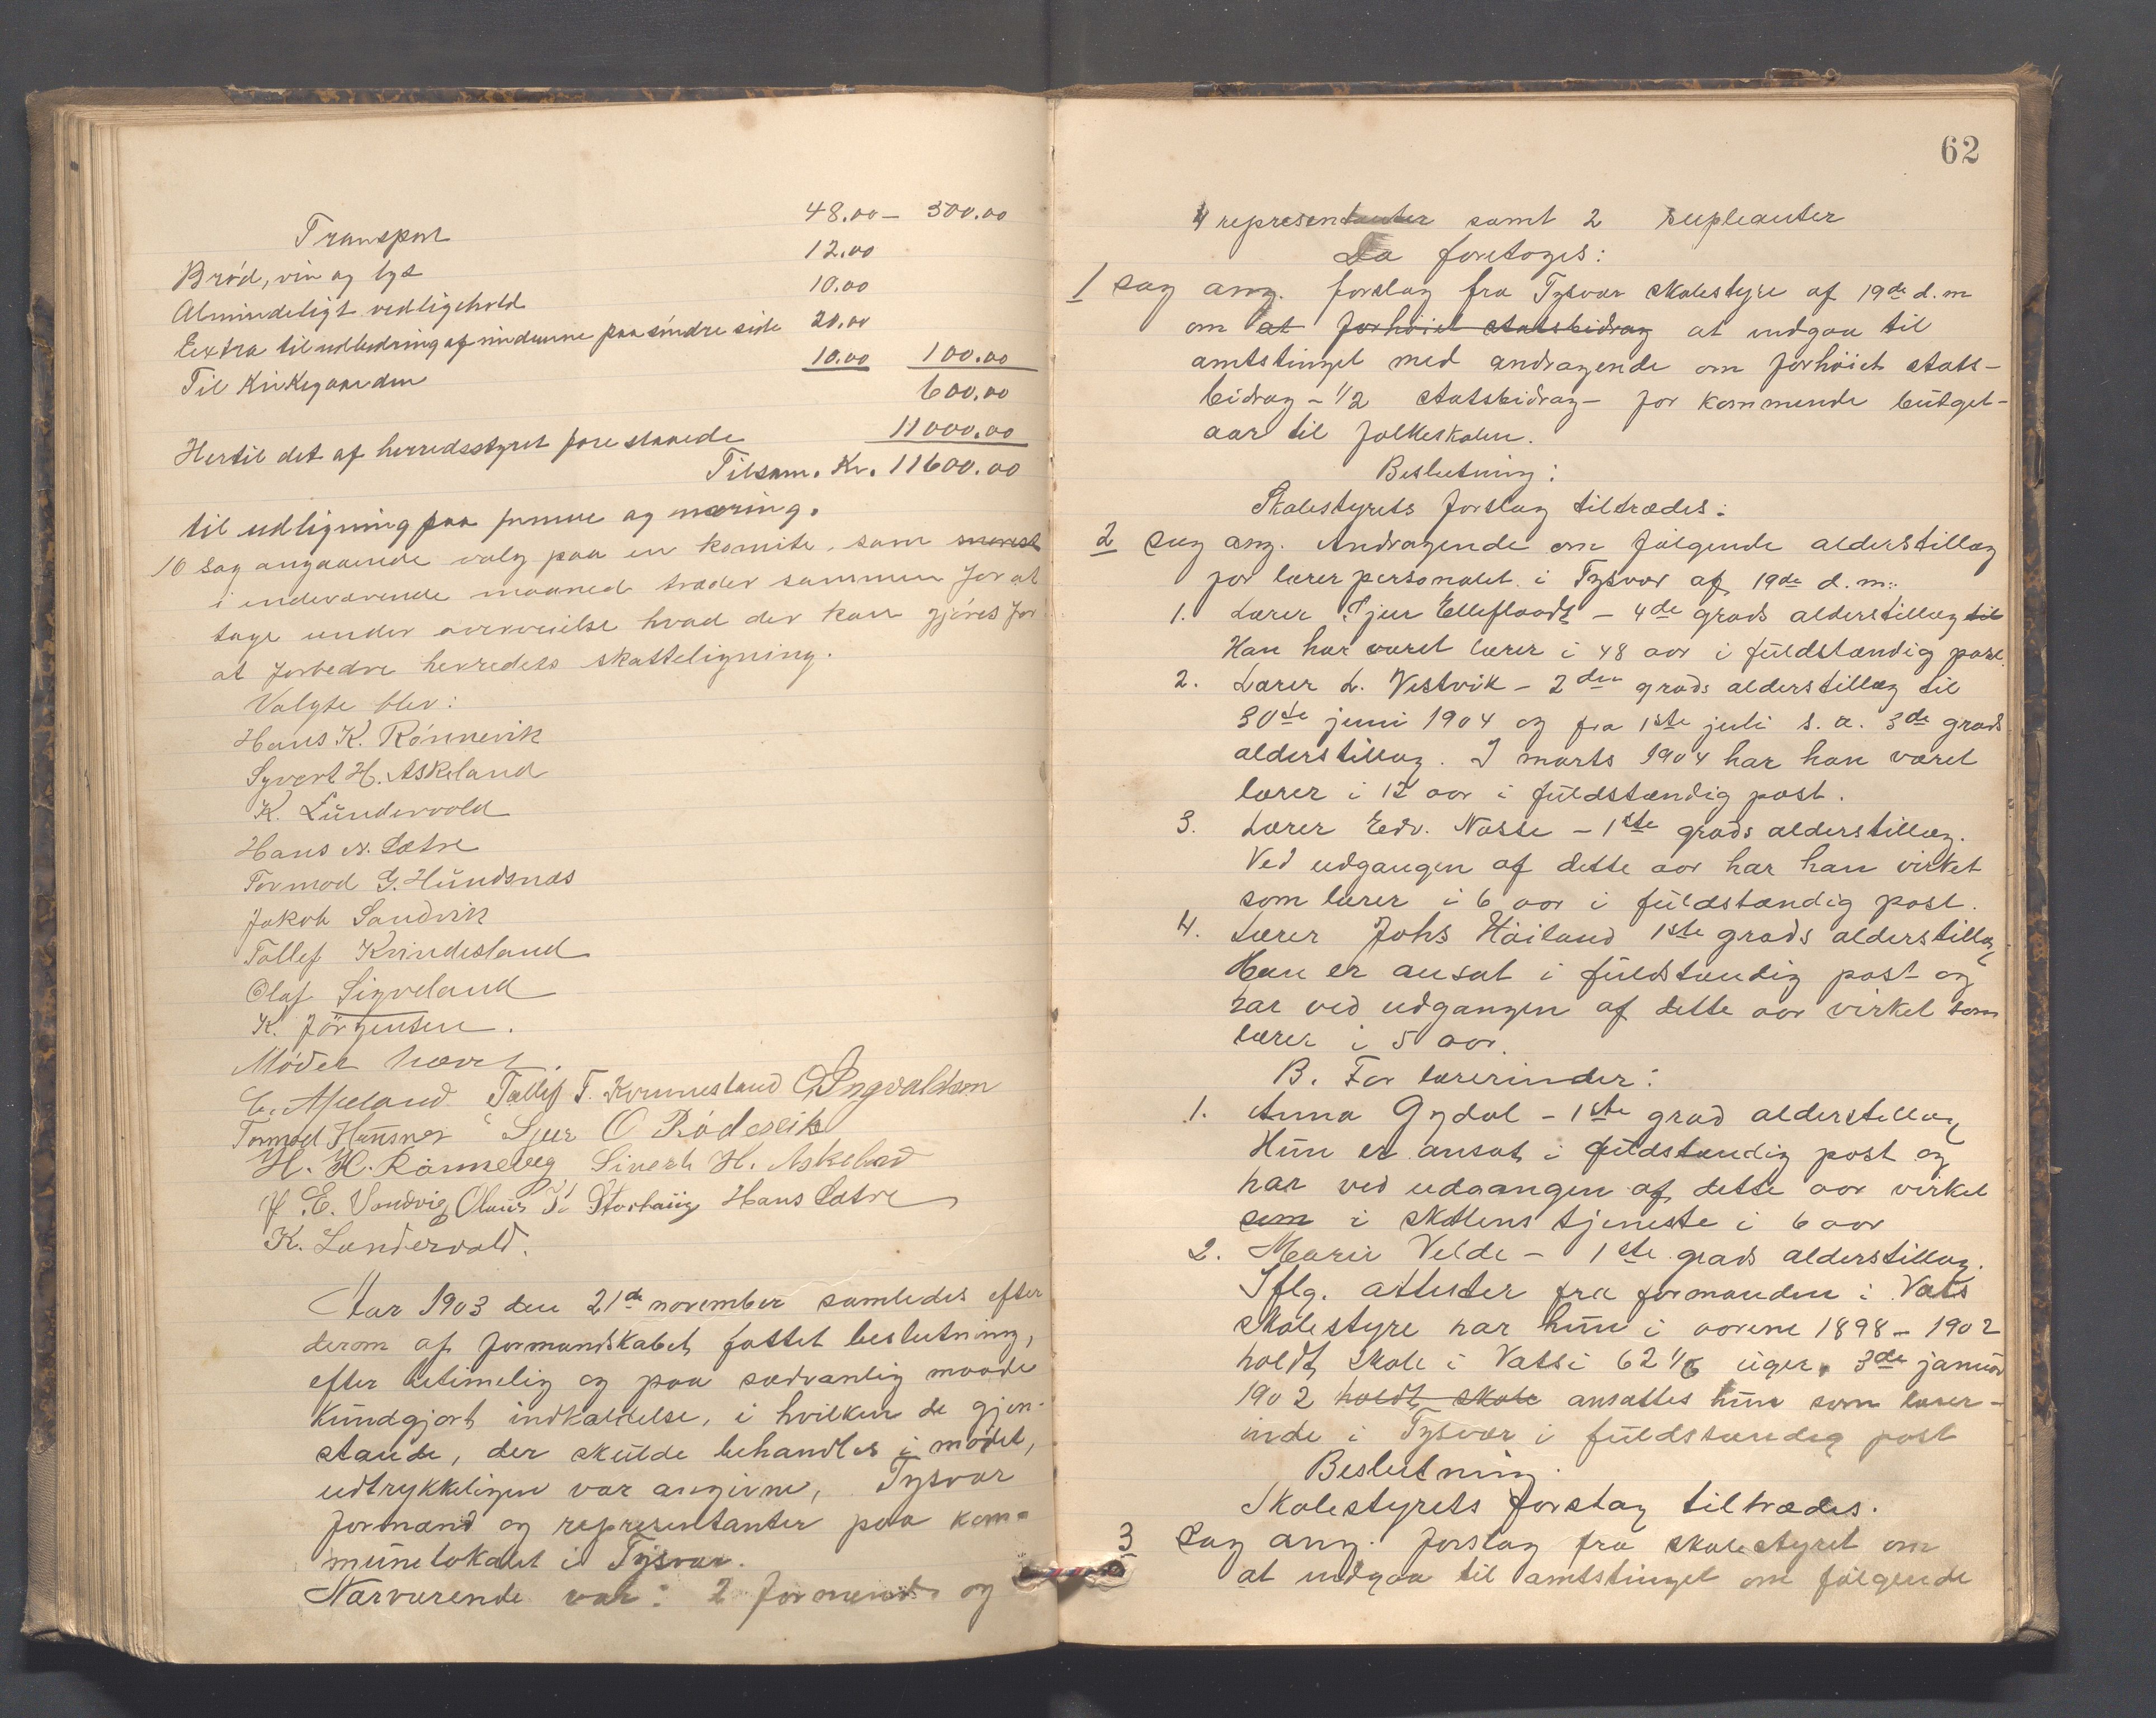 Transport 48.00 – 500.00
Brød, vin og lys 12.00
Almindeligt vedligehold 10.00
Extra til udbedring af muren paa søndre side 20.00
Til Kirkegaarden 10.00 100.00
600.00
Hertil det af herredsstyret forestaaede 11000.00
Tilsam. Kr. 11600.00
til udligning paa formue og næring.
10 Sag angaaende valg paa en komite, som snarest
i indeværende maaned træder sammen for at
tage under overveielse hvad der kan gjøres for
at forbedre herredets skatteligning.
Valgte blev:
Hans K. Rønnevik
Syvert H. Askeland
K. Lundervold
Hans N. Sætre
Tormod G. Hundsnæs
Jakob Sandvik
Tollef Kvindesland
Olaf Sigveland
K. Jørgensen.
Mødet hævet.
E. Apeland Tollef T. Kvinnesland O Ingvaldsen
Tormod Hunsnes Sjur O Rødeseike
H. K. Rønnevig Sivert H. Askeland
J. E. Sandvig Olaus K. Storhaug Hans Sætre
K. Lundervold.
Aar 1903 den 21de november samledes efter
derom af formandskabet fattet beslutning,
efter betimelig og paa sædvanlig maade
kundgjort indkaldelse, i hvilken de gjen-
stande, der skulde behandles i mødet,
udtrykkeligen var angivne, Tysvær
formænd og repræsentanter paa kom-
munelokalet i Tysvær.
Nærværende var: 2 formænd og
62
4 representanter samt 2 supleanter
Da foretoges:
1 Sag ang. forslag fra Tysvær skolestyre af 19de d.m
om at forhøiet statsbidrag at indgaa til
amtstinget med andragende om forhøiet stats-
bidrag – 1/2 statsbidrag – for kommende budget-
aar til folkeskolen.
Beslutning:
Skolestyrets forslag tiltrædes.
2 Sag ang. Andragende om følgende alderstillæg
for lærerpersonalet i Tysvær af 19de d.m.:
1. Lærer Sjur Ellefland – 4de grads alderstillæg til
Han har været lærer i 48 aar i fuldstændig post.
2. Lærer L. Vestvik – 2den grads alderstillæg til
30te juni 1904 og fra 1ste juli s.a. 3de grads
alderstillæg. I marts 1904 har han været
lærer i 12 aar i fuldstændig post.
3. Lærer Edv. Nasse – 1ste grads alderstillæg.
Ved udgangen af dette aar har han virket
som lærer i 6 aar i fuldstændig post.
4. Lærer Johs Høiland 1ste grads alderstillæg
Han er ansat i fuldstændig post og
har ved udgangen af dette aar virket som
lærer i 5 aar.
B. For lærerinder:
1. Anna Gydal – 1ste grad alderstillæg
Hun er ansat i fuldstændig post og
har ved udgangen af dette aar virket
som i skolens tjeneste i 6 aar
2. Marie Velde – 1ste grads alderstillæg.
Iflg. attester fra formanden i Vats
skolestyre har hun i aarene 1898 – 1902
holdt skole i Vats i 62 1/6 uger. 3de januar
1902 holdt skole ansattes hun som lærer-
inde i Tysvær i fuldstændig post
Beslutning.
Skolestyrets forslag tiltrædes.
3 Sag ang. forslag fra skolestyret om
at indgaa til amtstinget om følgende